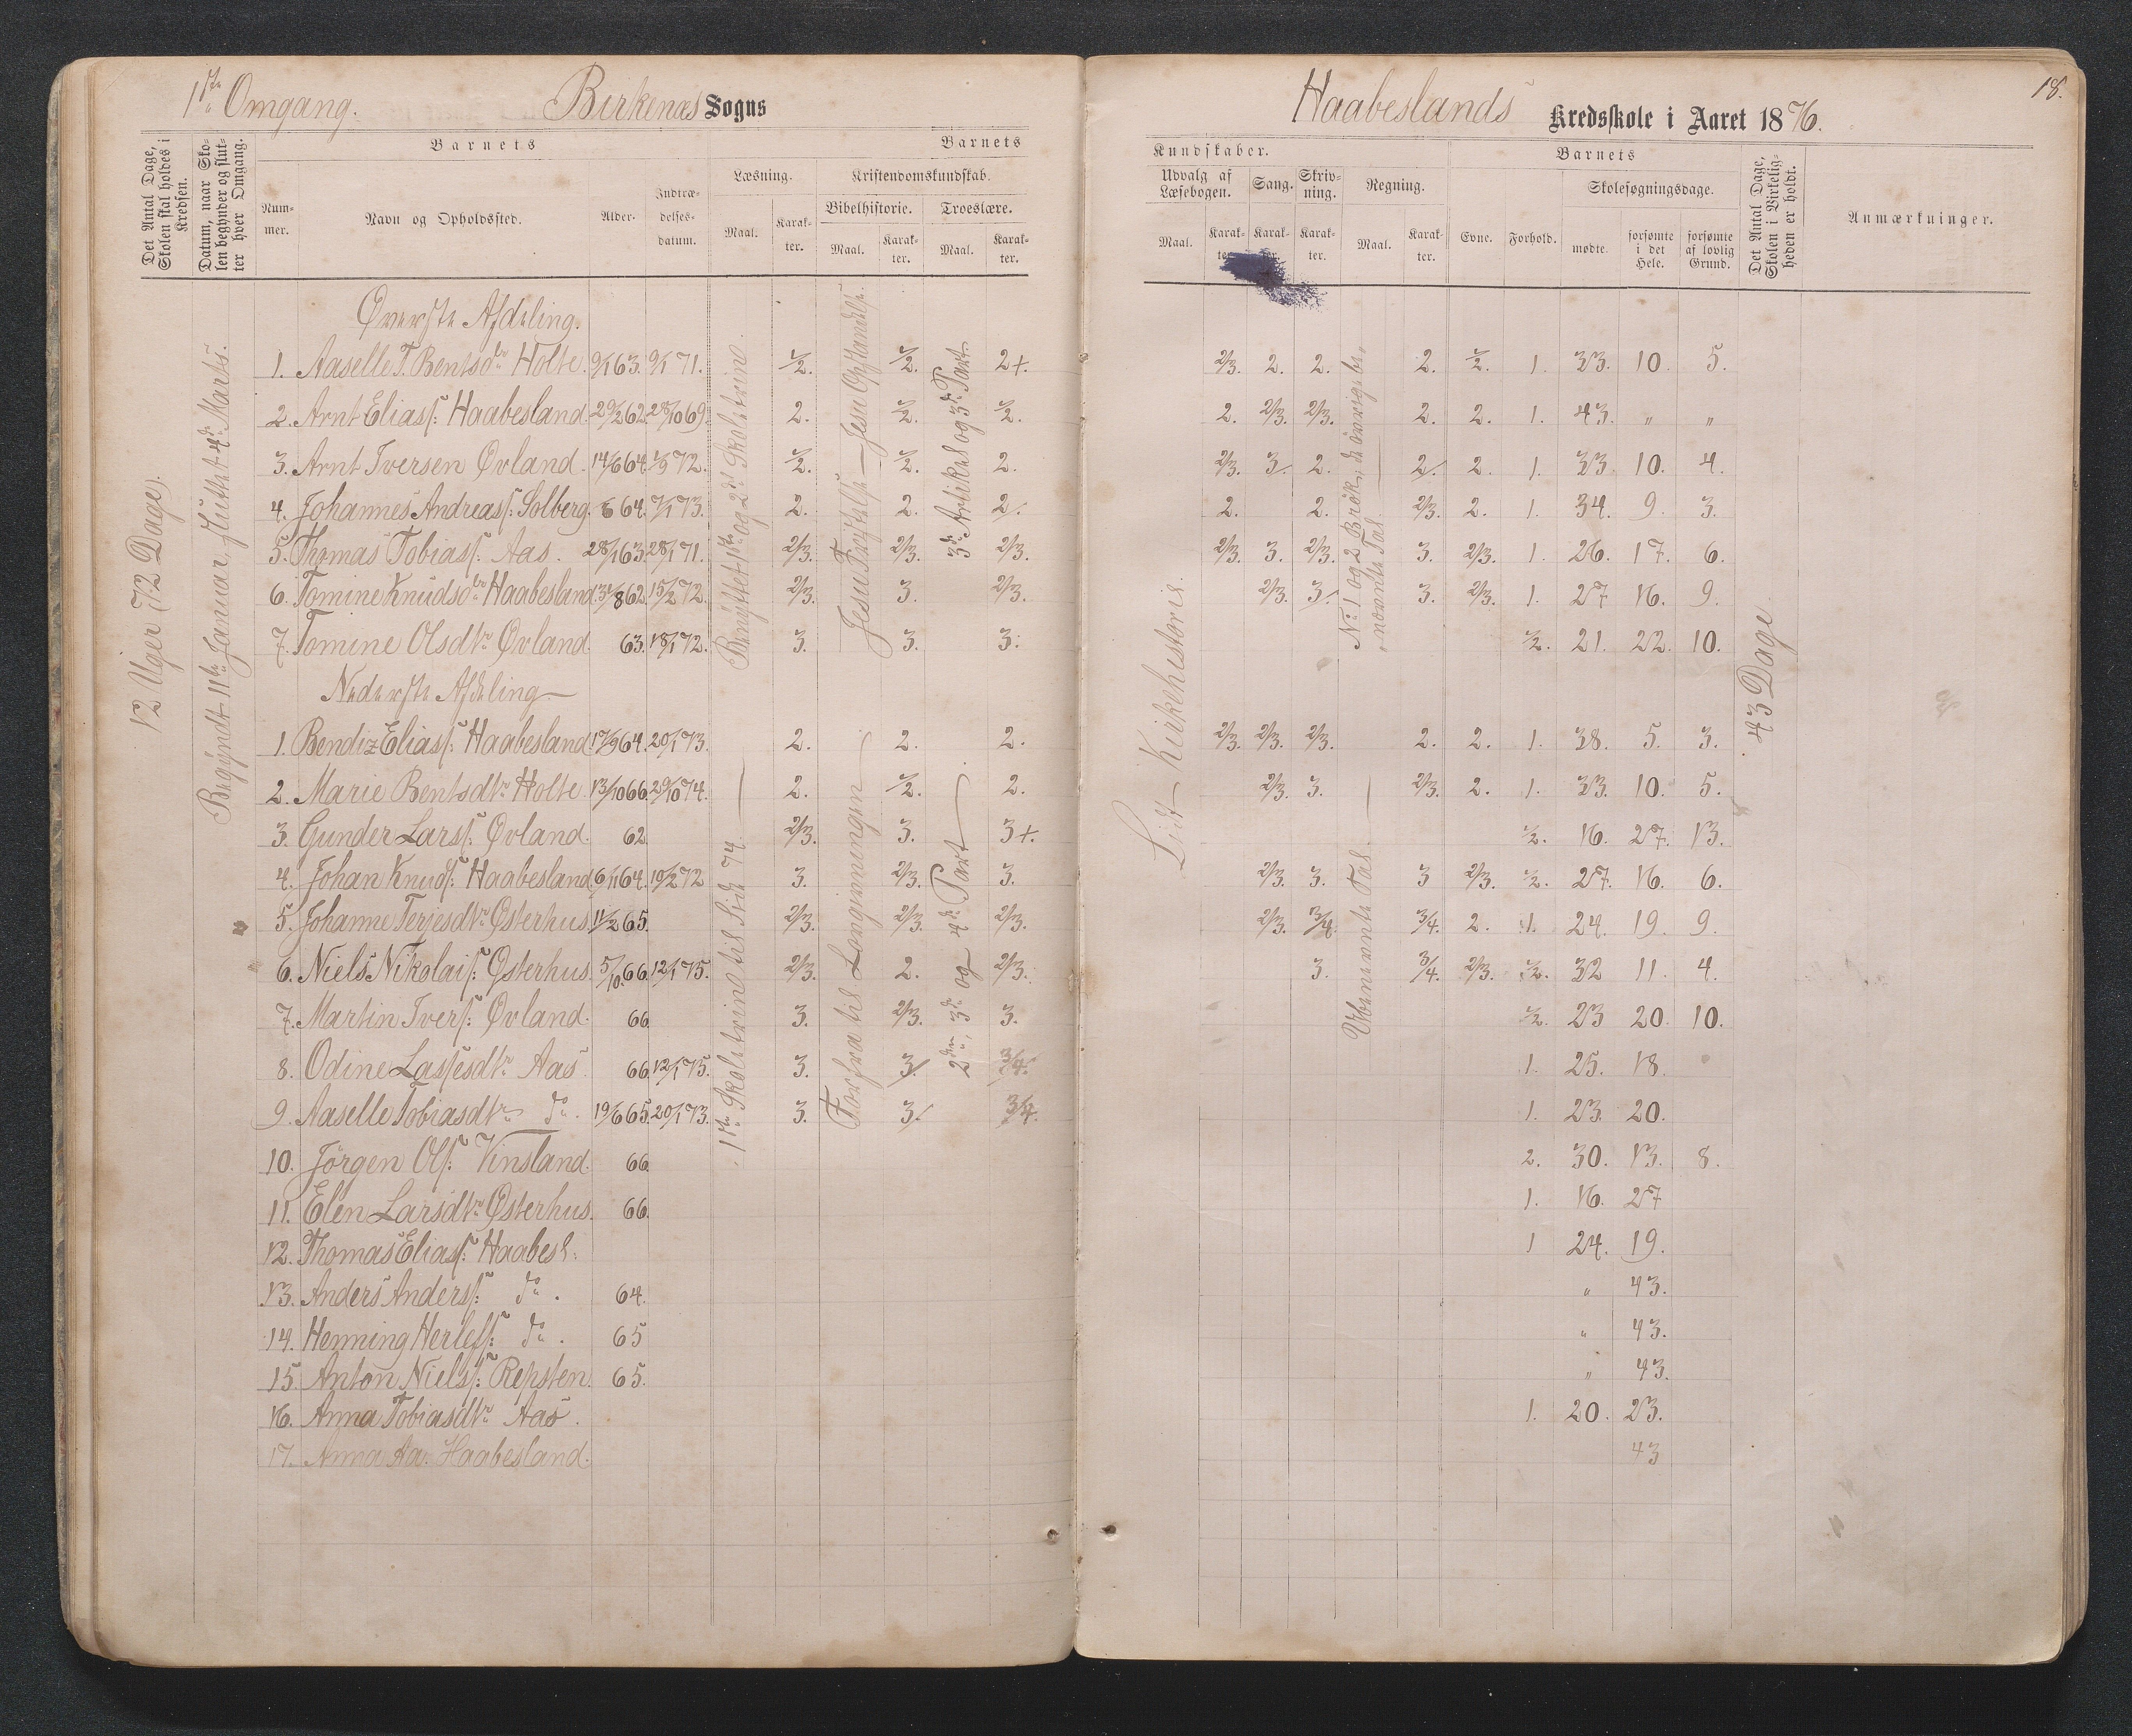 1ste Omgang. Birkenæs Sogns
Haabeslands Kredsskole i Aaret 1876. 18.
Det Antal Dage, Skolen skal holdes i Kredsen.
Datum, naar Skolen begynder og slutter hver Omgang.
Barnets
Barnets
Nummer.
Navn og Opholdssted.
Alder.
Indtrædelsesdatum.
Læsning.
Kristendomskundskab.
Bibelhistorie.
Troeslære.
Maal. Karakter. Maal. Karakter. Maal. Karakter.
Kundskaber.
Barnets
Udvalg af Læsebogen.
Sang.
Skrivning.
Regning.
Maal. Karakter. Karakter. Karakter. Maal. Karakter.
Evne. Forhold.
Skolesøgningsdage.
mødte. forsømte i det Hele. forsømte af lovlig Grund.
Det Antal Dage, Skolen i Virkeligheden er holdt.
Anmærkninger.
12 Uger (72 Dage).
Begyndt 11te Januar, sluttet 4de Marts.
Benyttet 1ste og 2det Skoletrin.
3die Artikel og 3die Part.
No 1 og 2 Brøk; de øvrige benævnte Tal.
Lidt Kirkehistorie.
43 Dage
Øverste Afdeling.
1. Aaselle T. Bentsdtr Holte. 9/1 63. 9/1 71. 1/2. 1/2. 2+. 2/3. 2. 2. 2. 1/2. 1. 33. 10. 5.
2. Arnt Eliass: Haabesland. 29/2 62. 28/10 69. 2. 1/2. 1/2. 2. 2/3. 2/3. 2. 2. 1. 43. " "
3. Arnt Iversen Øvland. 14/6 64. 1/3 72. 1/2. 1/2. 2. 2/3. 3. 2. 2. 2. 1. 33. 10. 4.
4. Johannes Andreass: Solberg. 64. 7/1 73. 2. 2. 2. 2. 2. 2/3. 2. 1. 34. 9. 3.
5. Thomas Tobiass: Aas. 28/1 63. 28/1 71. 2/3. 2/3. 2/3. 2/3. 3. 2/3. 3. 2/3. 1. 26. 17. 6.
6. Tomine Knudsdtr Haabesland. 31/8 62. 15/2 72. 2/3. 3. 2/3. 2/3. 3. 3. 2/3. 1. 27 16. 9.
7. Tomine Olsdtr Øvland. 63. 18/1 72. 3. 3. 3. 1/2. 21. 22. 10.
Nederste Afdeling
1ste Skoletrin til Side 74.
Forfra til Longinningen
2den, 3die og 4de Part
Ubenævnte Tal.
1. Bendix Eliass: Haabesland. 17/9 64. 20/1 73. 2. 2. 2. 2/3. 2/3. 2/3. 2. 2. 1. 38. 5. 3.
2. Marie Bentsdtr Holte. 13/10 66. 29/10 74. 2. 1/2. 2. 2/3. 3. 2/3. 2. 1. 33. 10. 5.
3. Gunder Larss: Øvland. 62. 2/3. 3. 3+. 1/2. 16. 27. 13.
4. Johan Knuds: Haabesland. 6/11 64. 19/2 72 3. 2/3. 3. 2/3. 3. 3 2/3. 1/2. 27. 16. 6.
5. Johanne Terjesdtr Østerhus. 11/2 65. 2/3. 2/3. 2/3. 2/3. 3/4. 3/4. 2. 1. 24. 19. 9.
6. Niels Nikolais: Østerhus. 5/10 66. 12/1 75. 2/3. 2. 2/3. 3. 3/4. 2/3. 1/2. 32 11. 4.
7. Martin Ivers: Øvland. 66 3. 2/3. 3. 1/2. 23 20. 10.
8. Odine Lassesdtr Aas. 66. 12/1 75. 3. 3. 3/4. 1. 25. 18.
9. Aaselle Tobiasdtr do. 19/6 65. 20/1 73. 3. 3. 3/4. 1. 23. 20.
10. Jörgen Ols: Vinsland. 66 2. 30. 13. 8.
11. Elen Larsdtr Østerhus. 66. 1. 16. 27
12. Thomas Eliass: Haabesl: 1 24. 19.
13. Anders Anderss: do. 64. " 43.
14. Henning Herlefs: do. 65 " 43.
15. Anton Nielss: Repsten. 65. " 43.
16. Anna Tobiasdtr Aas. 1. 20. 23.
17. Anna Aa. Haabesland. 43